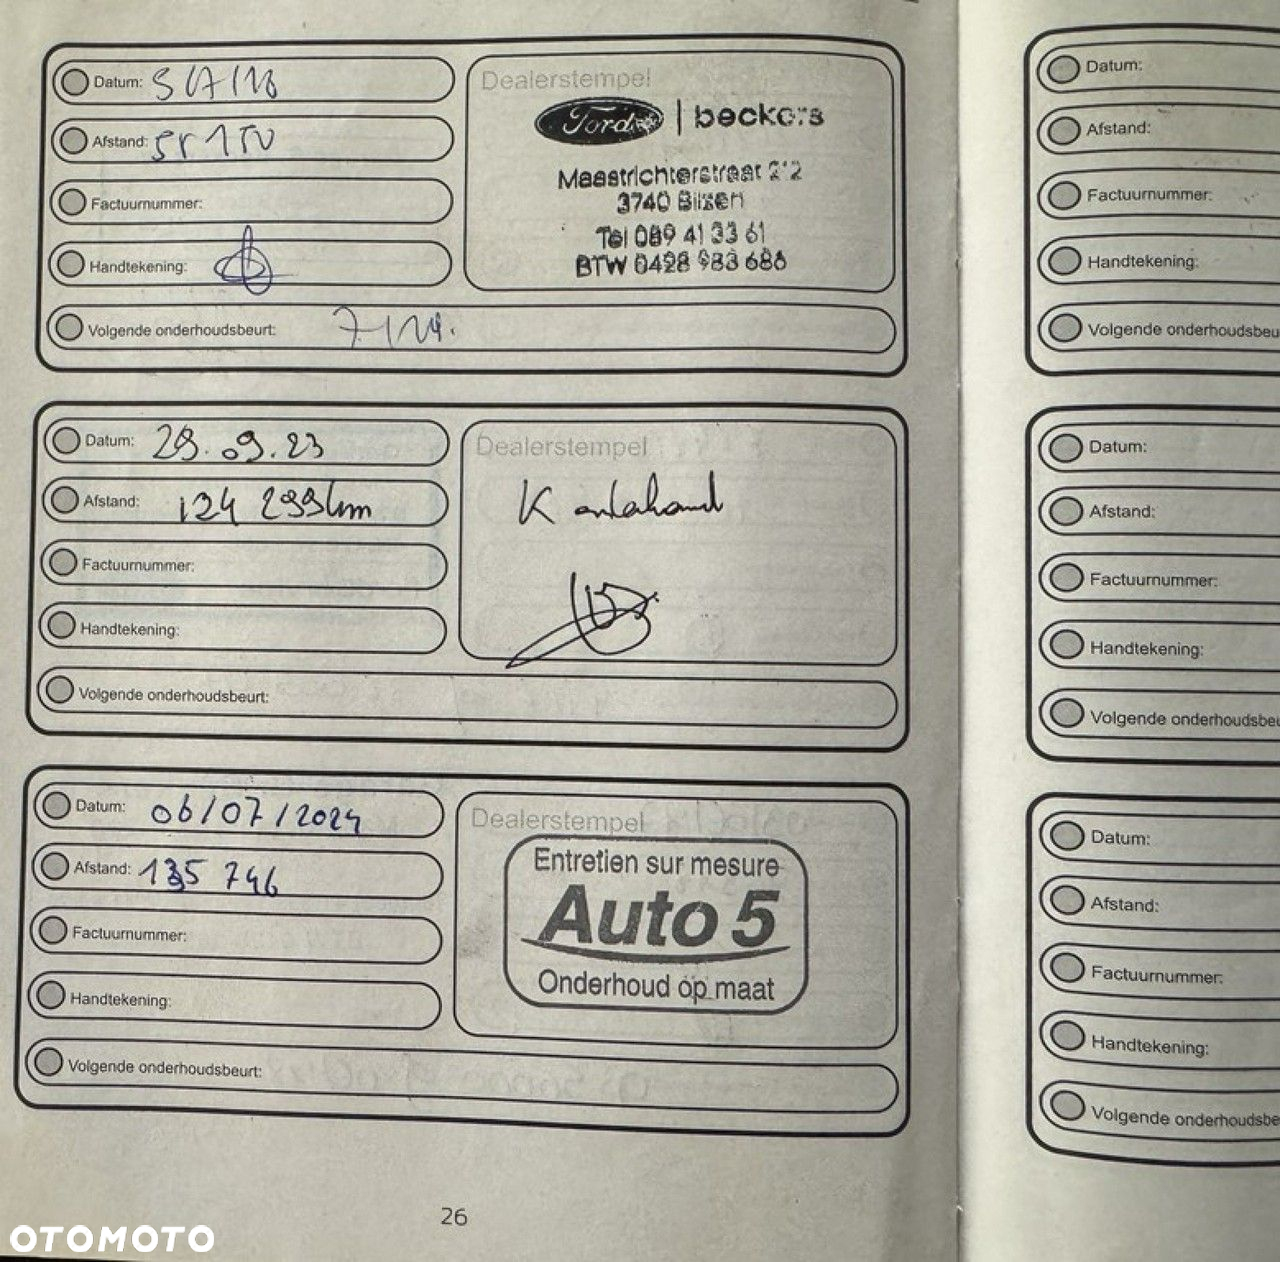 Datum: 5/7/18
Afstand:
Factuurnummer:
Handtekening:
Volgende onderhoudsbeurt:
Dealerstempel
Ford | beckers
Maastrichterstraat 212
3740 Bilzen
Tel 089 41 33 61
BTW 0428 983 686
Datum: 29.09.23
Afstand: 124 299km
Factuurnummer:
Handtekening:
Volgende onderhoudsbeurt:
Dealerstempel
Datum: 06/07/2024
Afstand: 135 746
Factuurnummer:
Handtekening:
Volgende onderhoudsbeurt:
Dealerstempel
Entretien sur mesure
Auto 5
Onderhoud op maat
26
Datum:
Afstand:
Factuurnummer:
Handtekening:
Volgende onderhoudsbeu
Datum:
Afstand:
Factuurnummer:
Handtekening:
Volgende onderhoudsbeu
Datum:
Afstand:
Factuurnummer:
Handtekening:
Volgende onderhoudsbe
OTOMOTO